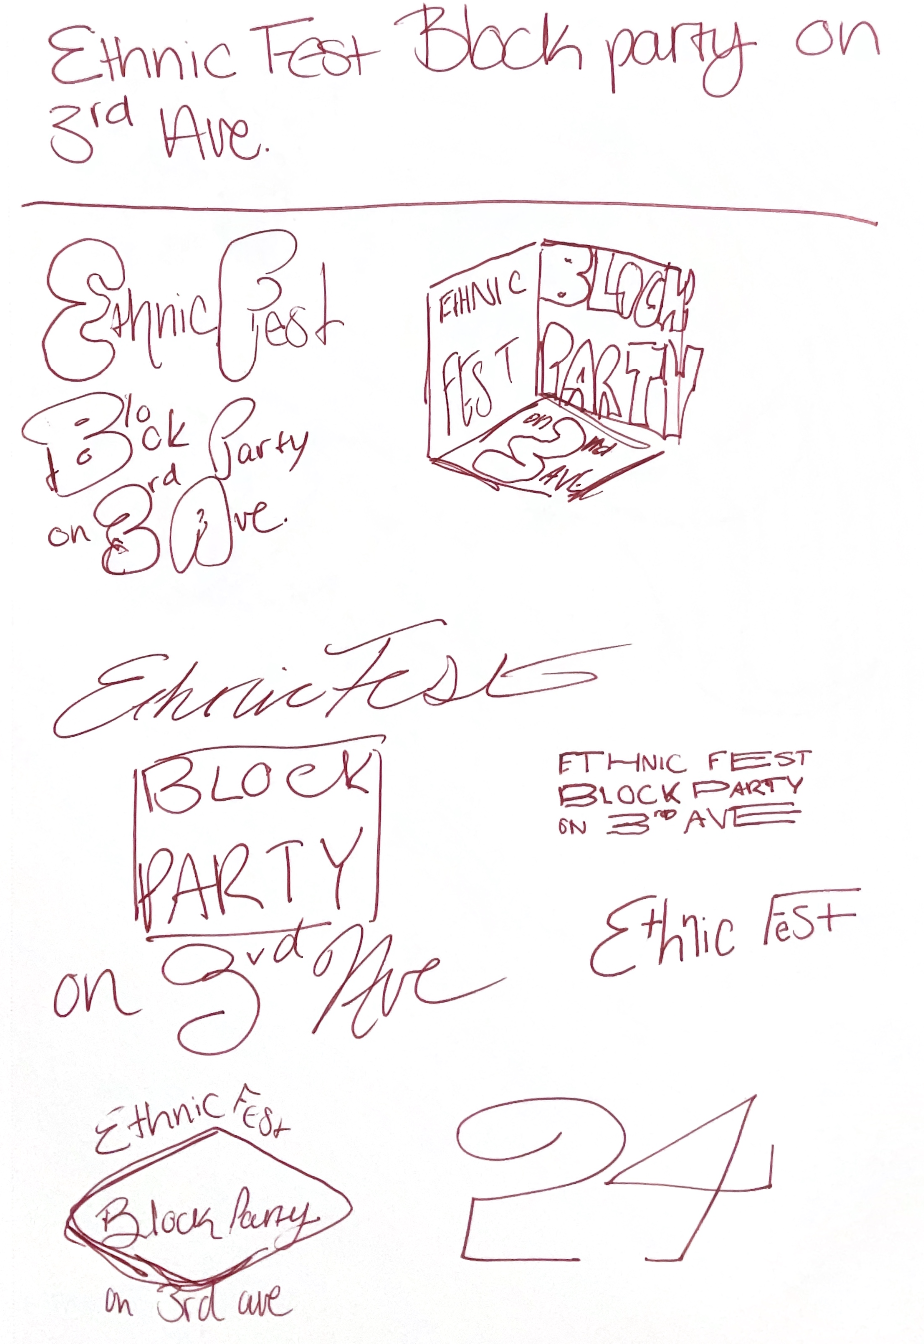 Ethnic Fest Block party on
3rd Ave.
Ethnic Fest
Block Party
on 3rd Ave.
ETHNIC
FEST
BLOCK
PARTY
on 3rd
AVE
Ethnic Fest
BLOCK
PARTY
on 3rd Ave
ETHNIC FEST
BLOCK PARTY
ON 3RD AVE
Ethnic Fest
Ethnic Fest
Block Party
on 3rd ave
24